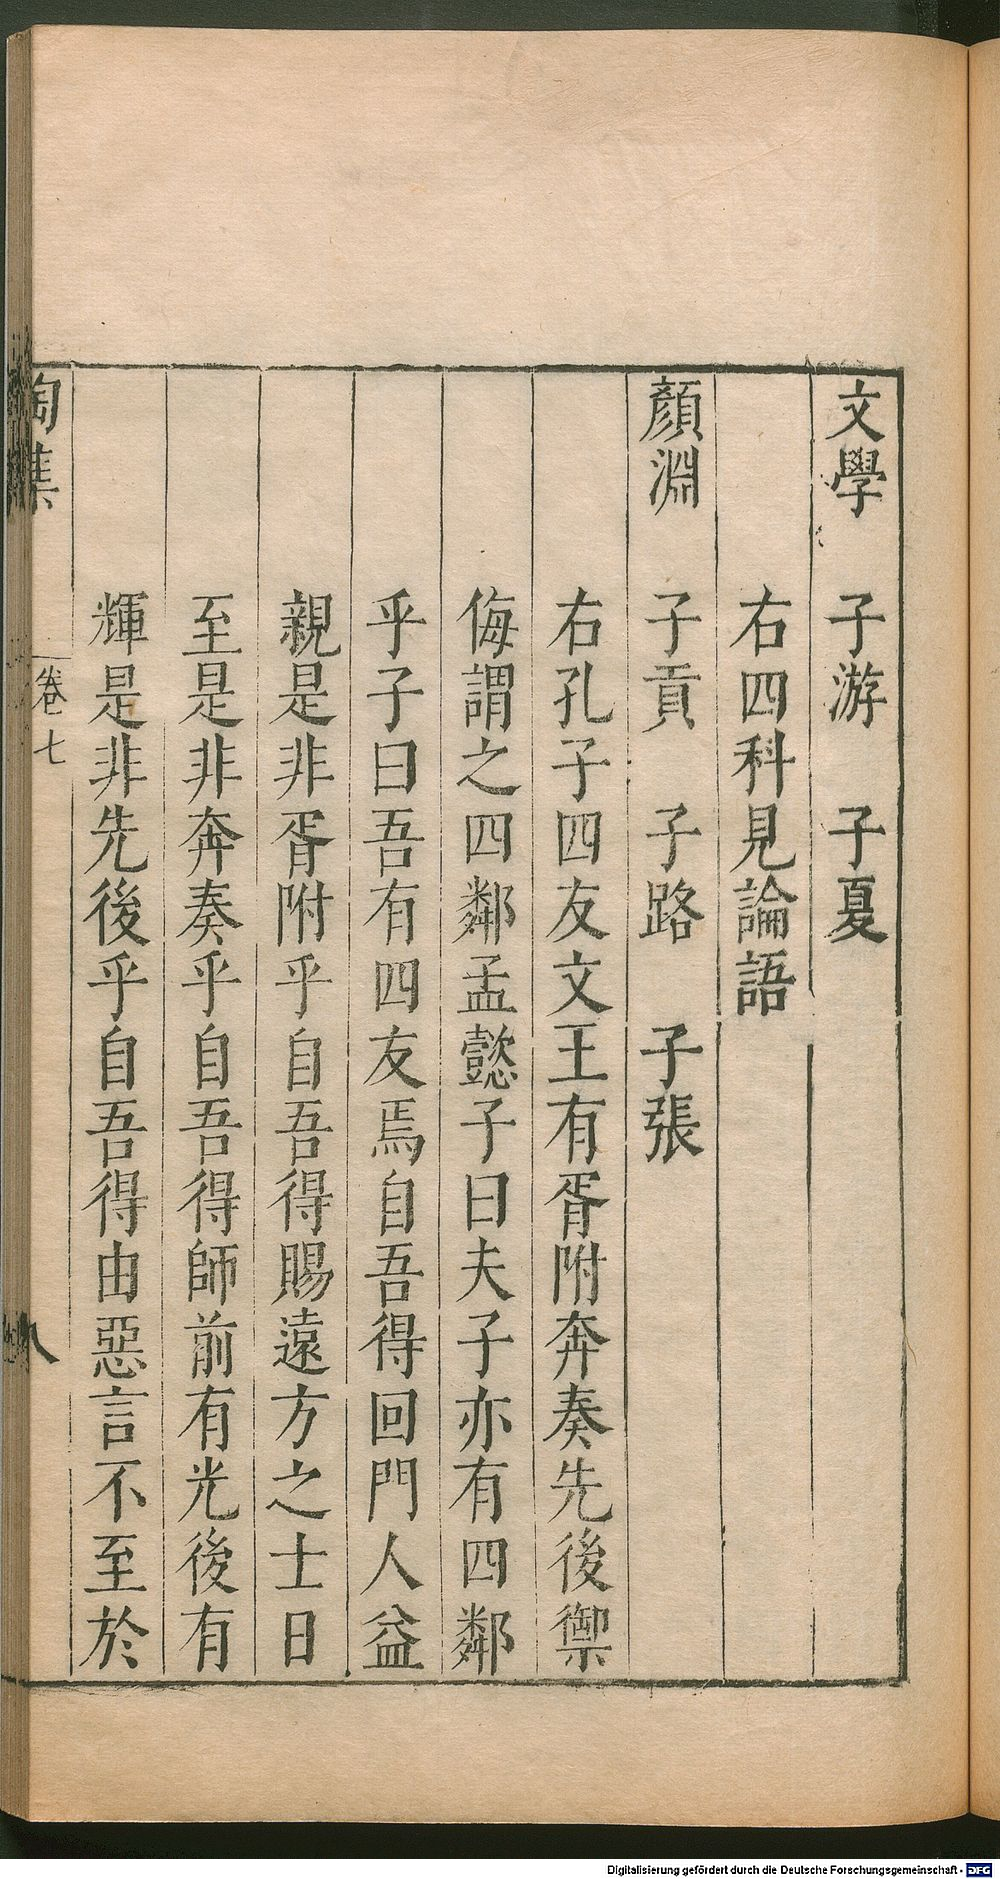 文學 子游 子夏
右四科見論語
顏淵 子貢 子路 子張
右孔子四友文王有胥附奔奏先後禦
侮謂之四鄰孟懿子曰夫子亦有四鄰
乎子曰吾有四友焉自吾得回門人益
親是非胥附乎自吾得賜遠方之士日
至是非奔奏乎自吾得師前有光後有
輝是非先後乎自吾得由惡言不至於
陶集 卷七 八
Digitalisierung gefördert durch die Deutsche Forschungsgemeinschaft - DFG